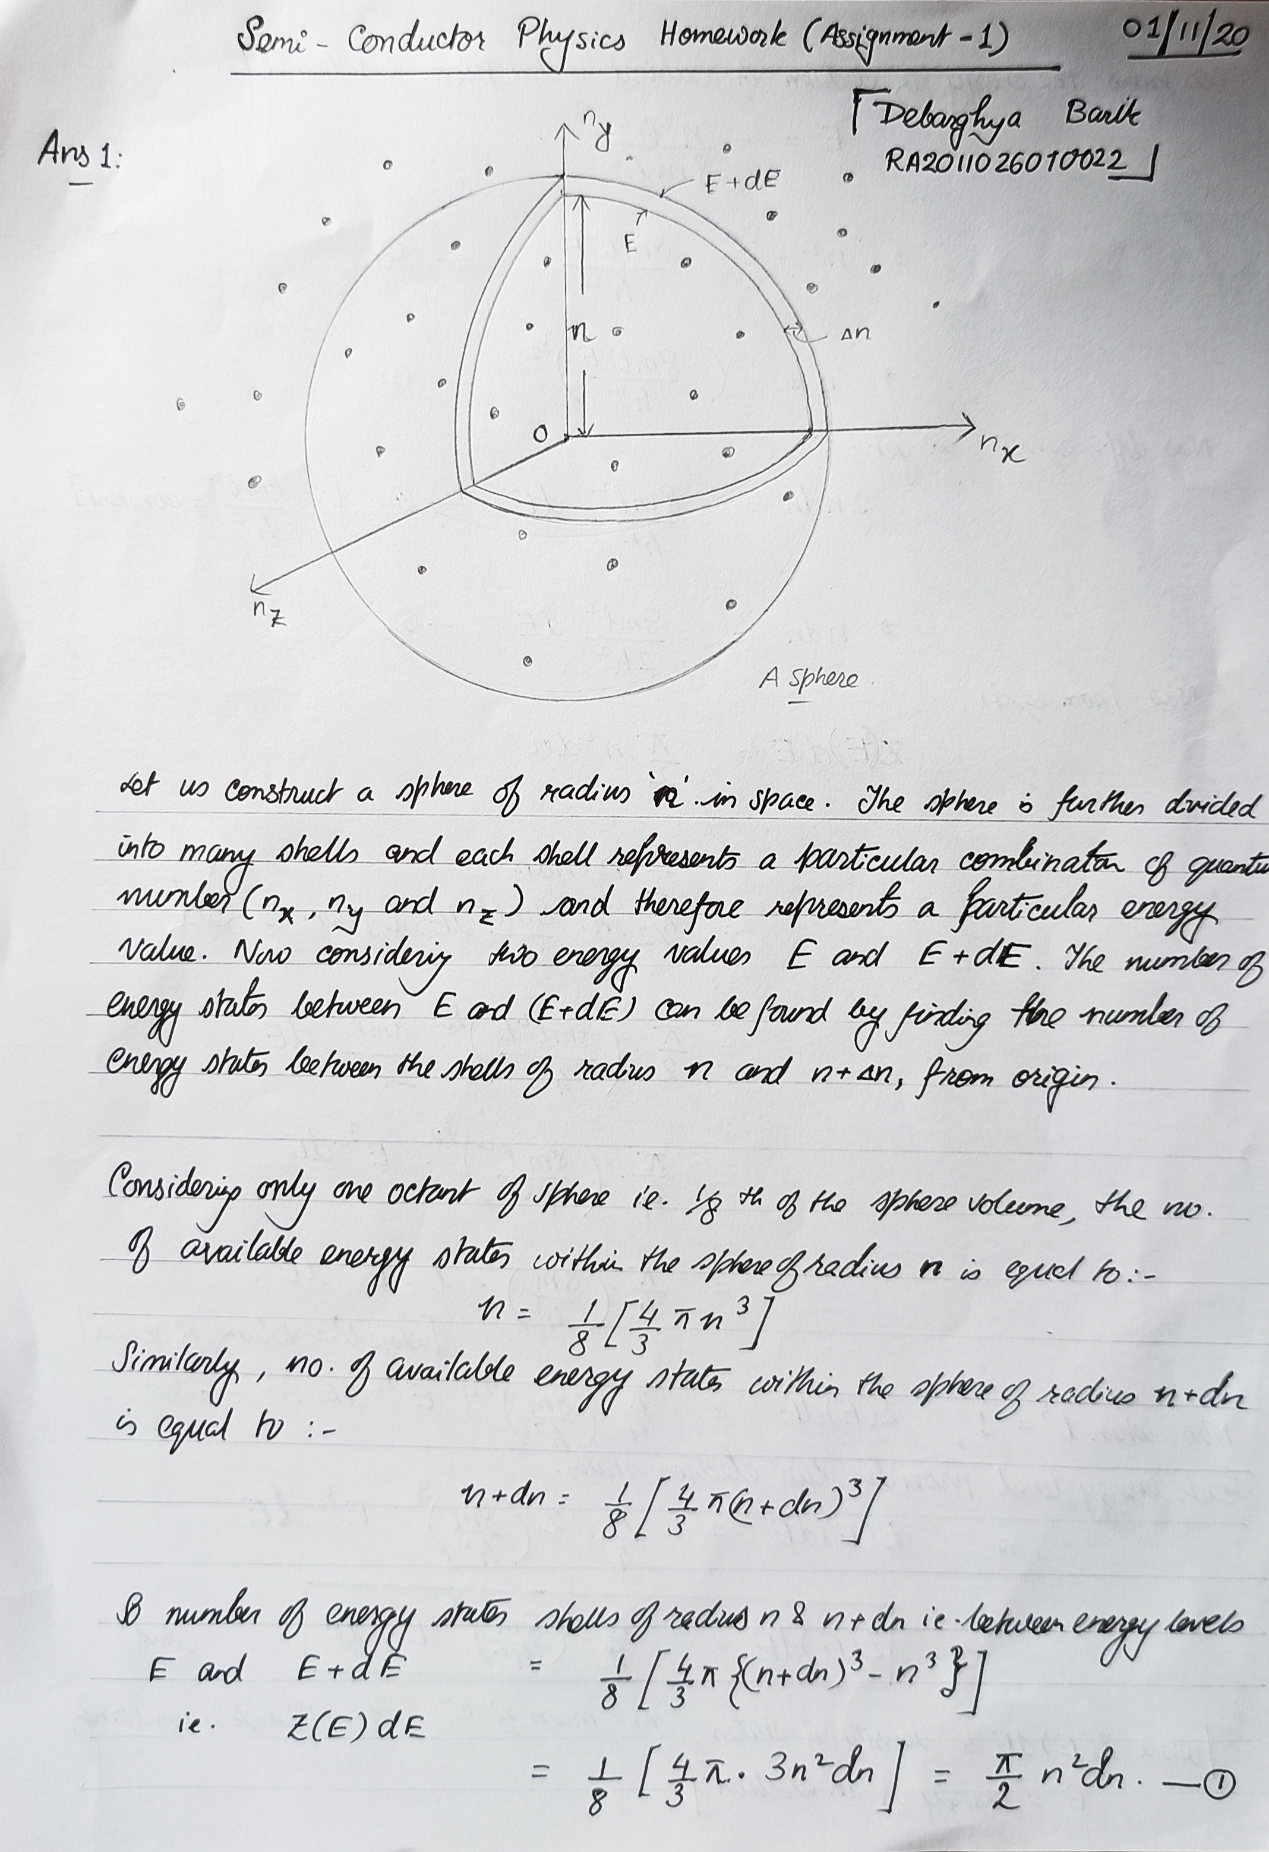 Semi-Conductor Physics Homework (Assignment-1) 01/11/20
Debarghya Barik
RA2011026010022
Ans 1:
n_y
E+dE
E
n
Δn
O
n_x
n_z
A sphere.
Let us construct a sphere of radius 'n' in space. The sphere is further divided
into many shells and each shell represents a particular combinaton of quantu
number (n_x, n_y and n_z) and therefore represents a particular energy
value. Now considering two energy values E and E+dE. The number of
energy states between E and (E+dE) can be found by finding the number of
energy states between the shells of radius n and n+Δn, from origin.
Considering only one octant of sphere ie. 1/8 th of the sphere volume, the no.
of available energy states within the sphere of radius n is equal to:-
n = 1/8 [4/3 πn³]
Similarly, no. of available energy states within the sphere of radius n+dn
is equal to :-
n+dn = 1/8 [4/3 π(n+dn)³]
So number of energy states shells of radius n & n+dn ie. between energy levels
E and E+dE = 1/8 [4/3 π{(n+dn)³ - n³}]
ie. Z(E)dE
= 1/8 [4/3 π. 3n²dn] = π/2 n²dn. —①